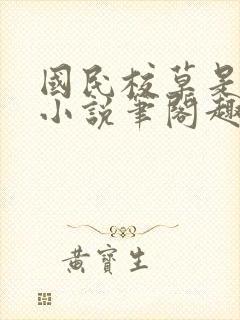 國民校草是
小說筆閣趣
黃寶生